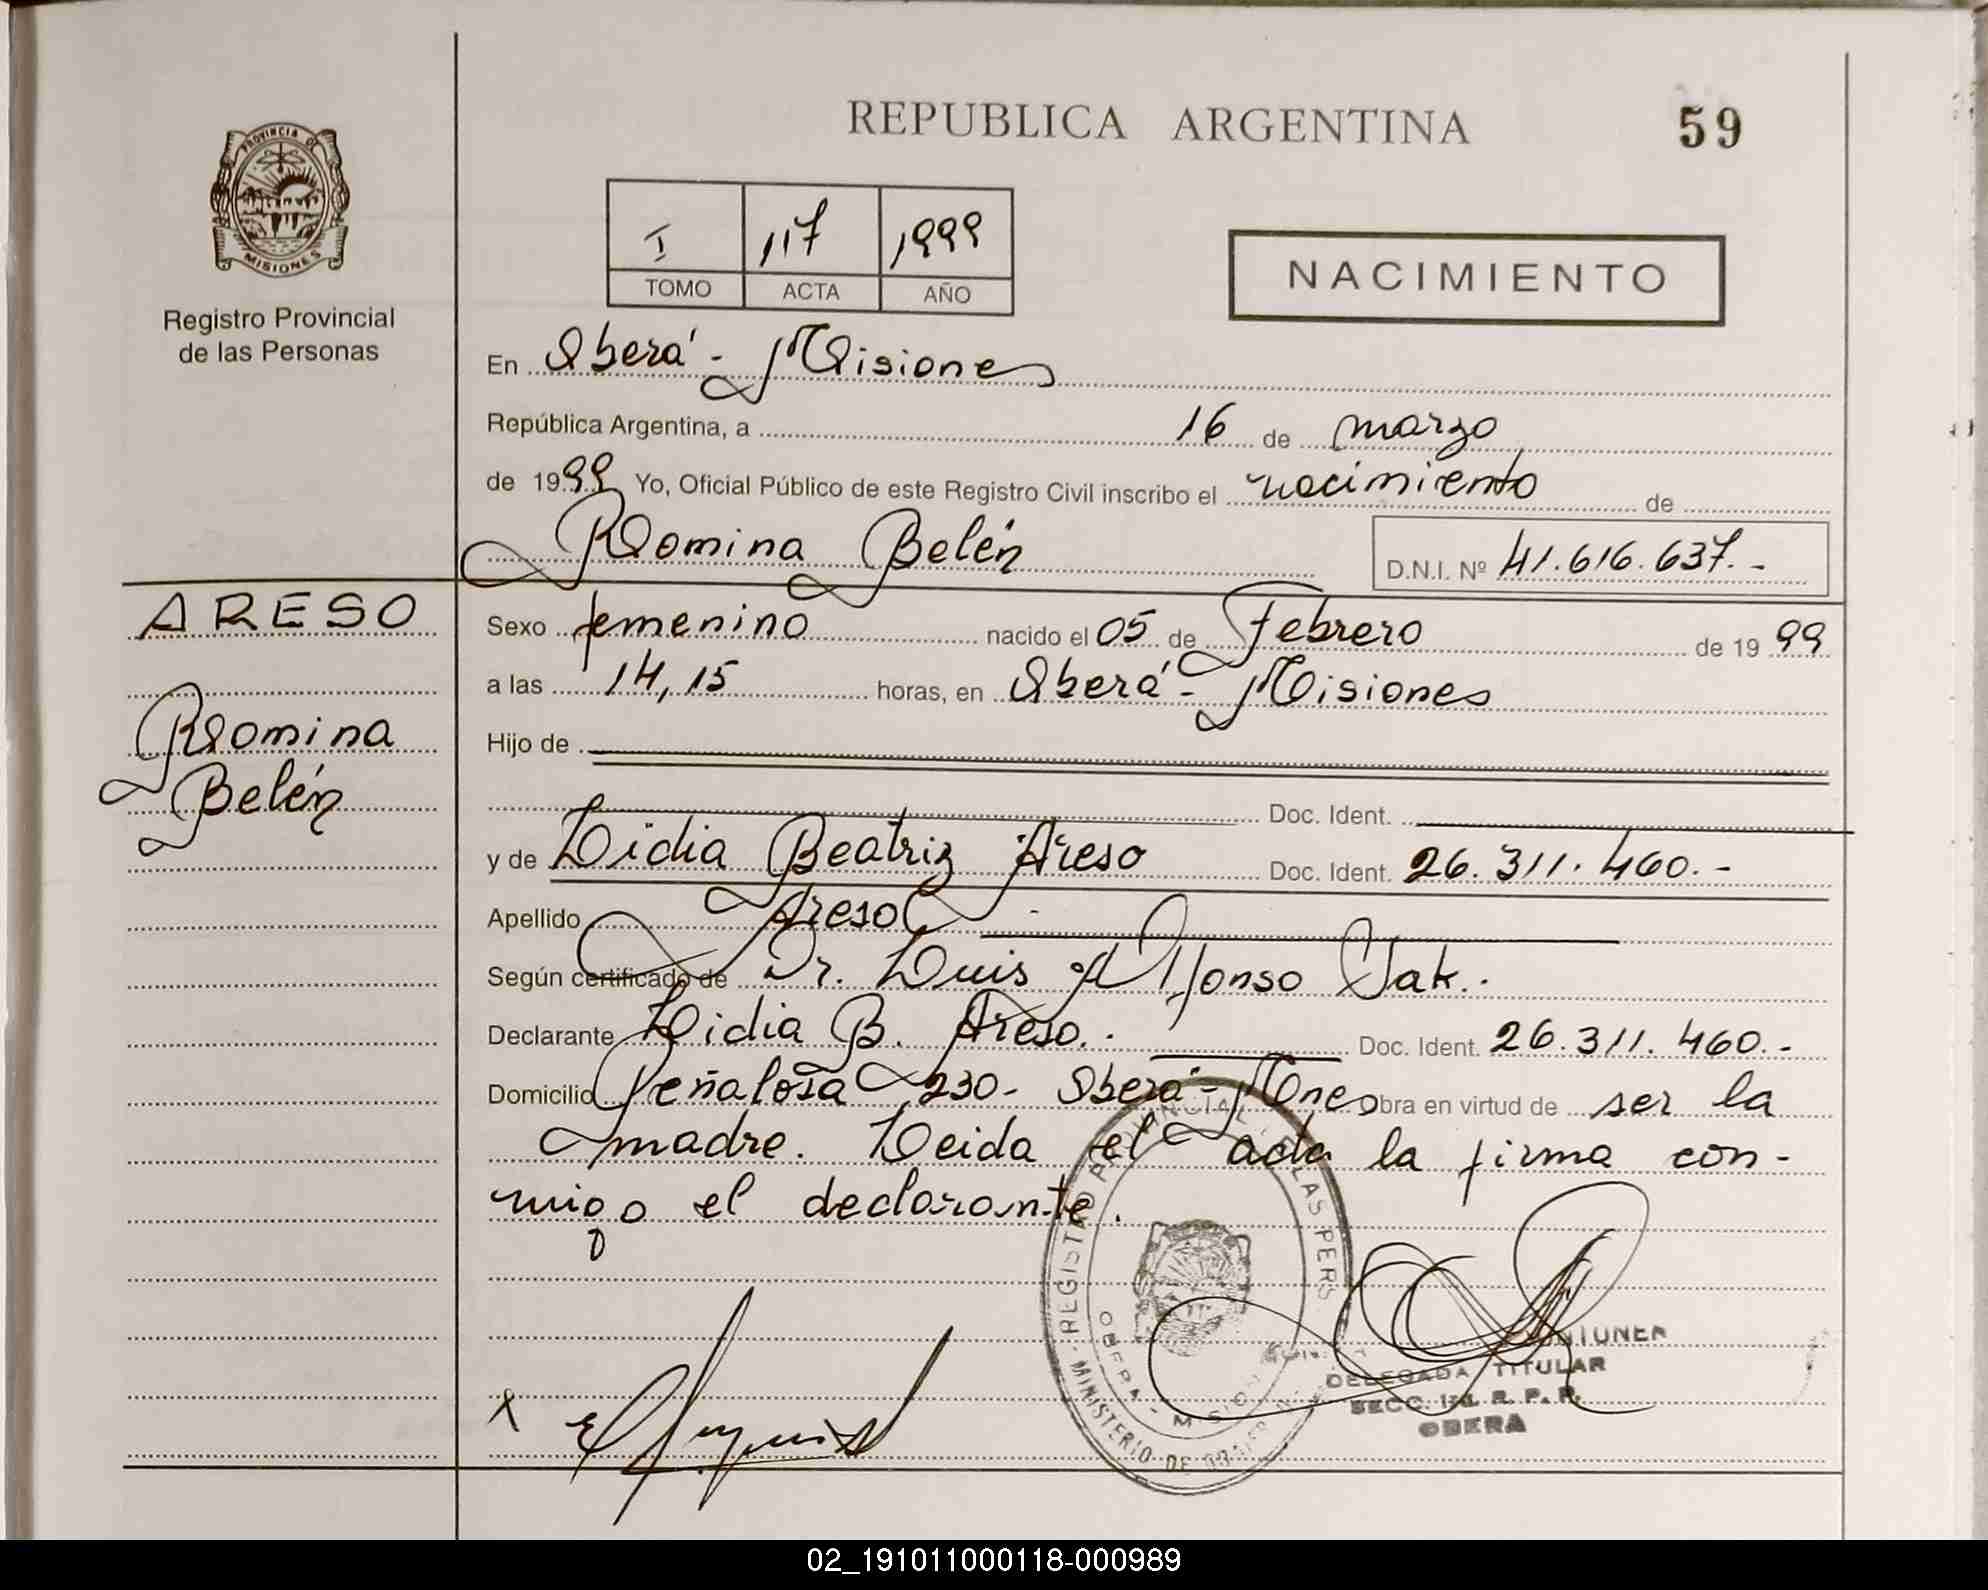 REPUBLICA ARGENTINA
59
PROVINCIA DE
MISIONES
Registro Provincial
de las Personas
I 117 1999
TOMO ACTA AÑO
NACIMIENTO
En Oberá - Misiones
República Argentina, a 16 de marzo
de 1999 Yo, Oficial Público de este Registro Civil inscribo el nacimiento de
Romina Belén D.N.I. Nº 41.616.637.-
ARESO
Romina
Belén
Sexo femenino nacido el 05 de Febrero de 1999
a las 14,15 horas, en Oberá - Misiones
Hijo de
Doc. Ident.
y de Lidia Beatriz Areso Doc. Ident. 26.311.460.-
Apellido Areso
Según certificado de Dr. Luis Alfonso Jak.
Declarante Lidia B. Areso. Doc. Ident. 26.311.460.-
Domicilio Peñaloza 230- Oberá - Mnes Obra en virtud de ser la
madre. Leida el acta la firma con-
migo el declarante.
REGISTRO PROVINCIAL DE LAS PERS
OBERA - MISIONES
MINISTERIO DE GOBIERNO
DELEGADA TITULAR
SECC. 1ra. R. P. P.
OBERA
X
02_191011000118-000989